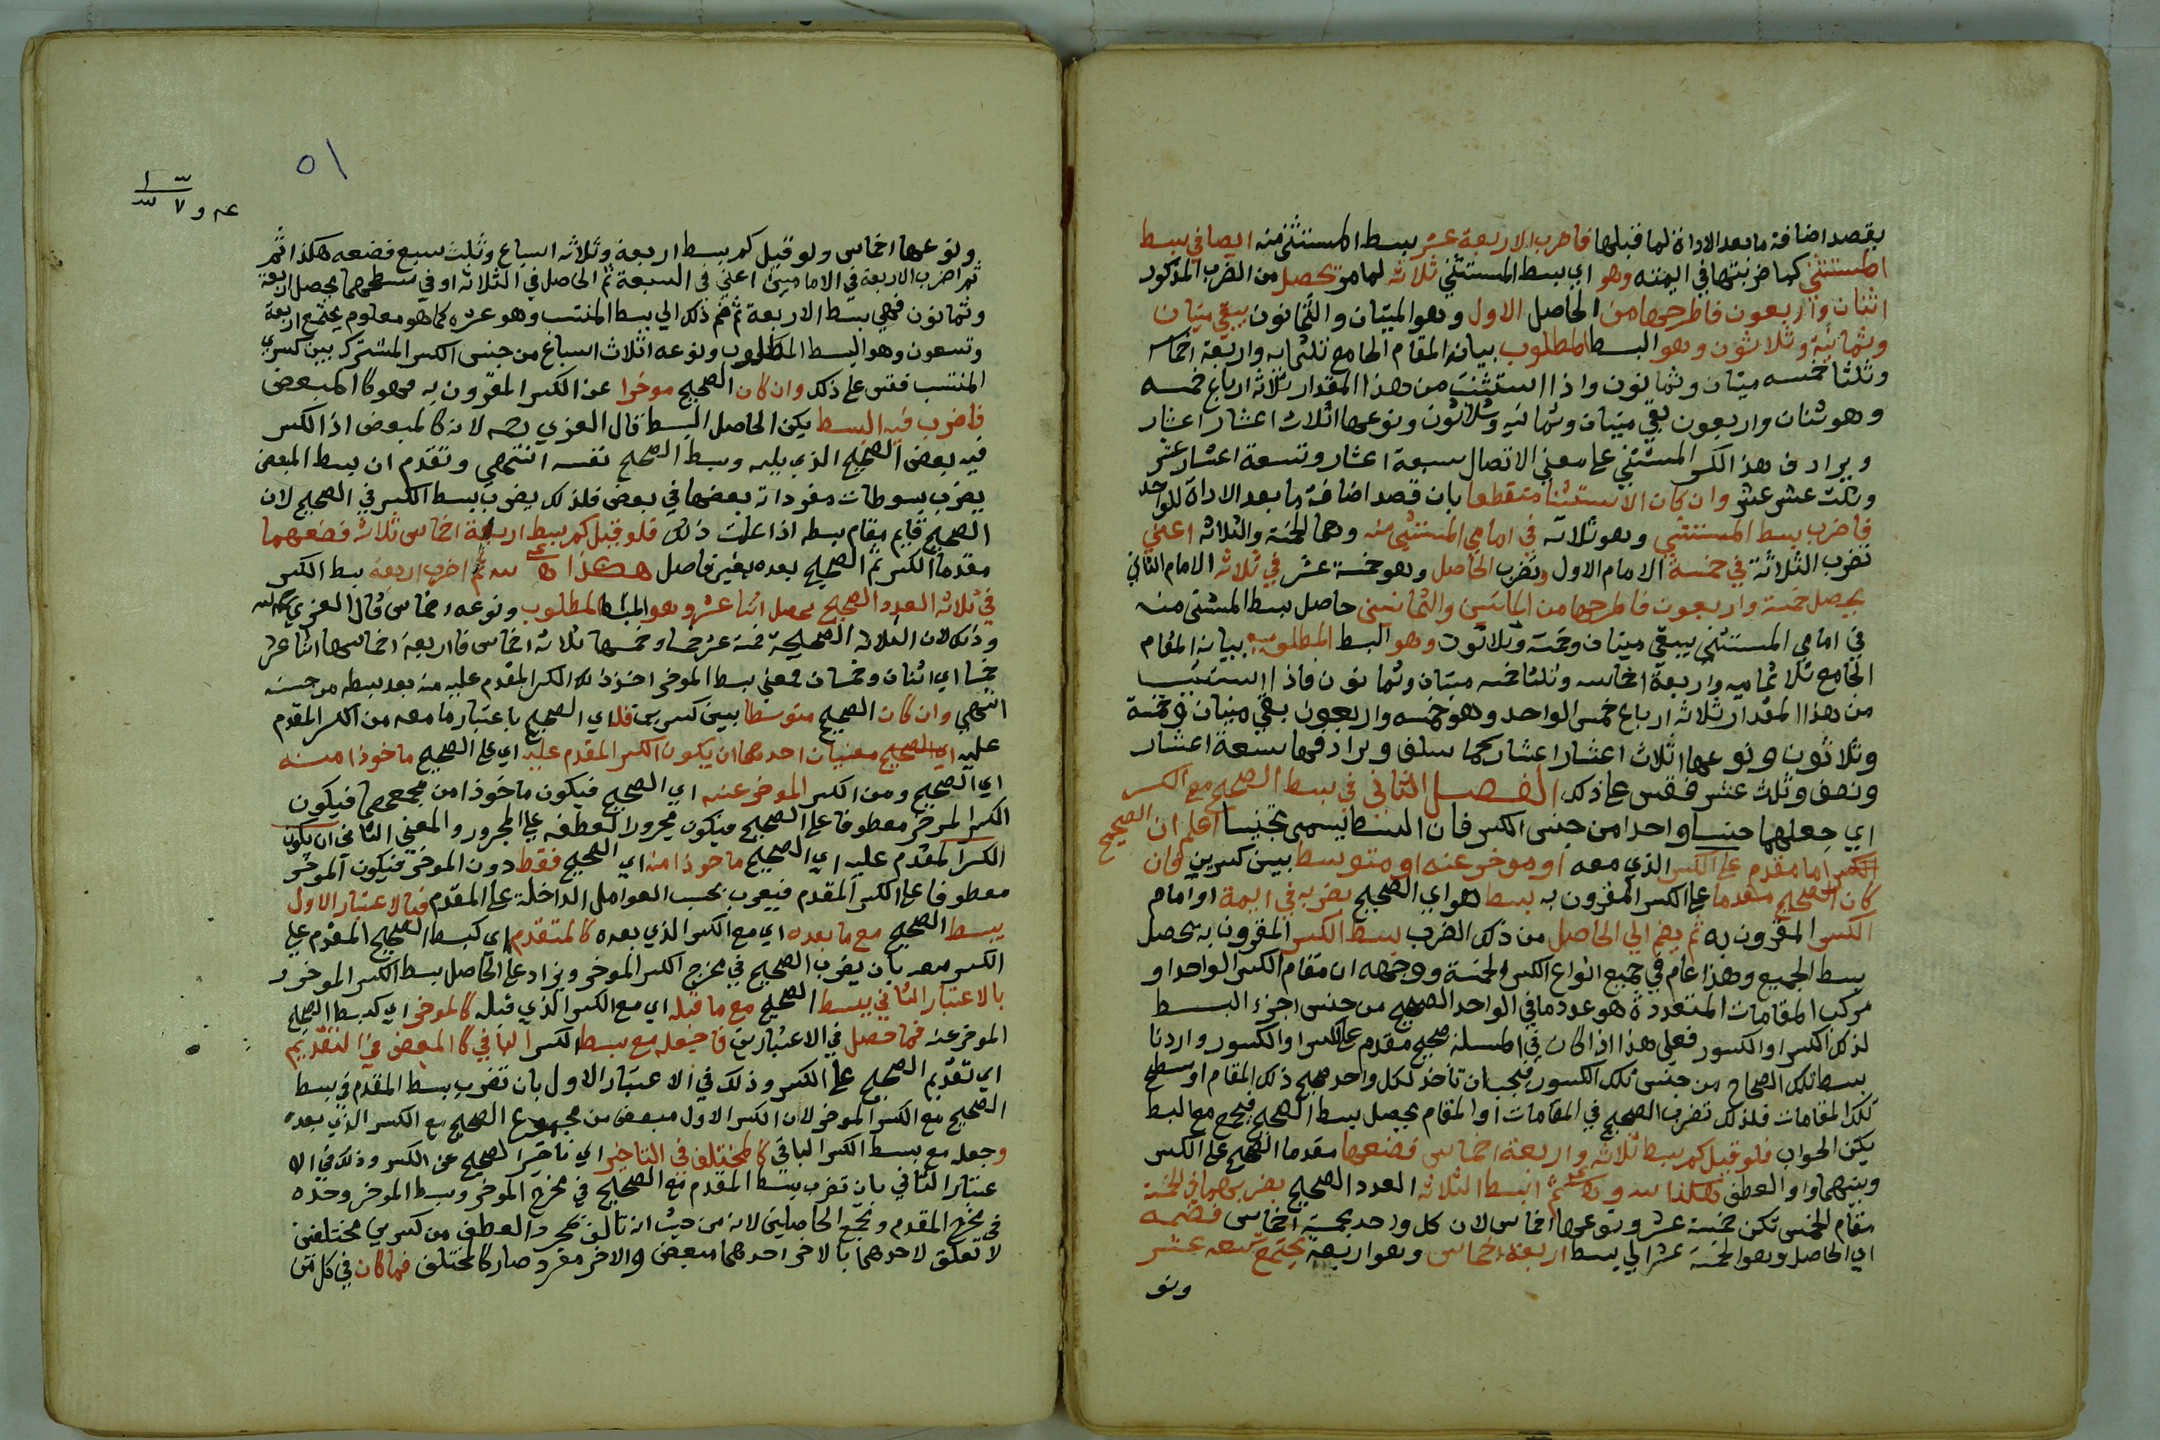 بقصد اضافة ما بعد الاداة لما قبلها فاضرب الاربعة عشر بسط المستثنى منه ايضا في بسط
المستثنى كما ضربتها في ايمته وهو اي بسط المستثنى ثلاثة لما مر يحصل من الضرب المذكور
اثنان واربعون فاطرحها من الحاصل الاول وهو الميتان والثمانون يبقى ميتان
وثمانية وثلاثون وهو البسط المطلوب بيانه المقام الجامع ثلثمايه واربعة اخماسه
وثلثا خمسه ميتان وثمانون واذا استثنيت من هذا المقدار ثلاثة ارباع خمسه
وهو ثنان واربعون بقي ميتان وثمانيه وثلاثون ونوعها اثلاث اعشار اعشار
ويرادف هذ الكسر المستثنى على معنى الاتصال سبعة اعشار وتسعة اعشار عشر
وثلث عشر عشر وان كان الاستثنا منقطعا بان قصد اضافة ما بعد الاداة للواحد
فاضرب بسط المستثنى وهو ثلاثه في امامي المستثنى منه وهما الخمسة والثلاثه اعني
تضرب الثلاثة في خمسة الامام الاول وتضرب الحاصل وهو خمسة عشر في ثلاثة الامام الثاني
يحصل خمسة واربعون فاطرحها من المايتين والثمانين حاصل بسط المستثنى منه
في امامي المستثنى يبقى ميتان وخمسة وثلاثون وهو البسط المطلوب بيانه المقام
الجامع ثلاثمايه واربعة اخماسه وثلثا خمسه ميتان وثمانون فاذا استثنيت
من هذا المقدار ثلاثة ارباع خمس الواحد وهو خمسه واربعون بقي ميتان وخمسة
وثلاثون ونوعها اثلاث اعشار اعشار كما سلف ويرادفها سبعة اعشار
ونصف وثلث عشر فقس على ذلك الفصل الثاني في بسط الصحيح مع الكسر
اي جعلهما جنسا واحدا من جنس الكسر فان البسط يسمى تجنيسا اعلم ان الصحيح
اما مقدم على الكسر الذي معه او موخر عنه او متوسط بين كسرين وان
كان الصحيح مقدما على الكسر المقرون به بسط هو اي الصحيح بضربه في ايمة او امام
الكسر المقرون به ثم يضم الي الحاصل من ذلك الضرب بسط الكسر المقرون به يحصل
بسط الجميع وهذا عام في جميع انواع الكسر الخمسة ووجهه ان مقام الكسر الواحد او
مركب المقامات المتعددة هو عدد ما في الواحد الصحيح من جنس اجزء البسط
لذلك الكسر او الكسور فعلى هذا اذا كان في المسلة صحيح مقدم على الكسر او الكسور واردنا
بسط تلك الصحاح من جنس تلك الكسور فيجب ان تاخذ لكل واحد صحيح ذلك المقام او سطح
تلك المقامات فلذلك تضرب الصحيح في المقامات او المقام يحصل بسط الصحيح فيجمع مع البسط
يكن الجواب فلو قيل كم بسط ثلاثة واربعة اخماس فضعها مقدما الصحيح على الكسر
وبينهما واو العطف هكذا ثم ابسط الثلاثة العدد الصحيح بضربها في الخمسة
مقام الخمس تكن خمسة عشر ونوعها اخماس لان كل واحد بخمسة اخماس فضمه
اي الحاصل وهو الخمسة عشر الي بسط اربعة اخماس وهو اربعة يجتمع تسعه عشر
ونو
٥١
ونوعها اخماس ولو قيل كم بسط اربعة وثلاثه اسباع وثلث سبع فضعه هكذا ثم
ثم اضرب الاربعة في الامامين اعني في السبعة ثم الحاصل في الثلاثه او في مسطحهما يحصل اربعة
وثمانون فهي بسط الاربعة ثم ضم ذلك الي بسط المنتسب وهو عشره كما هو معلوم يجتمع اربعة
وتسعون وهو البسط المطلوب ونوعه اثلاث اسباع من جنس الكسر المشترك بين كسري
المنتسب فقس على ذلك وان كان الصحيح موخرا عن الكسر المقرون به فهو كالمبعض
فاضرب فيه البسط يكن الحاصل البسط قال الغزي رحمه لانه كالمبعض اذ الكسر
فيه بعض الصحيح الذي يليه وبسط الصحيح نفسه انتهى وتقدم ان بسط المبعض
بضرب بسوطات مفرداته بعضها في بعض فلذلك يضرب بسط الكسر في الصحيح لان
الصحيح قايم مقام بسطه اذا علمت ذلك فلو قيل كم بسط اربعة اخماس ثلاثة فضعهما
مقدما الكسر ثم الصحيح بعده بغير فاصل هكذا ثم اضرب اربعة بسط الكسر
في ثلاثة العدد الصحيح يحصل اثنا عشر وهو البسط المطلوب ونوعه اخماس قال الغزي
وذلك لان الثلاثة الصحيحة خمسة عشر خمسا وخمسها ثلاثة اخماس فاربعة اخماسها اثنا عشر
خمسا اي اثنان وخمسان فمعنى بسط الموخر اخذ ذلك الكسر المقدم عليه منه بعد بسطه من جنسه
انتهى وان كان الصحيح متوسطا بين كسرين فله اي الصحيح باعتبار ما معه من الكسر المقدم
عليه معنيان احدهما ان يكون الكسر المقدم عليه اي على الصحيح ماخوذا منه
اي الصحيح ومن الكسر الموخر عنه اي الصحيح فيكون ماخوذا من مجموعهما فيكون
الكسر الموخر معطوفا على الصحيح فيكون مجرورا لعطفه على المجرور والمعنى الثاني ان يكون
الكسر المقدم عليه اي الصحيح ماخوذا منه اي الصحيح فقط دون الموخر فيكون الموخر
معطوفا على الكسر المقدم فيعرب بحسب العوامل الداخلة على المقدم فبالاعتبار الاول
يبسط الصحيح مع ما بعده اي مع الكسر الذي بعده كالمتقدم اي كبسط الصحيح المقدم على
الكسر معه بان يضرب الصحيح في مخرج الكسر الموخر ويزاد على الحاصل بسط الكسر الموخر و
بالاعتبار الثاني يبسط الصحيح مع ما قبله اي مع الكسر الذي قبله كالموخر اي كبسط الصحيح
الموخر عنه فما حصل في الاعتبارين فاجعله مع بسط الكسر الباقي كالمبعض في التقديم
اي تقديم الصحيح على الكسر وذلك في الاعتبار الاول بان تضرب بسط المقدم في بسط
الصحيح مع الكسر الموخر لان الكسر الاول مبعض من مجموع الصحيح مع الكسر الذي بعده
وجعله مع بسط الكسر الباقي كالمختلف في التاخير اي تاخير الصحيح عن الكسر وذلك في الا
عتبار الثاني بان تضرب بسط المقدم مع الصحيح في مخرج الموخر وبسط الموخر وحده
في مخرج المقدم وتجمع الحاصلين لانه من حيث انه تالف بمجرد العطف من كسرين مختلفين
لا تعلق لاحدهما بالاخر احدهما مبعض والاخر مفرد صار كالمختلف فما كان في كل من